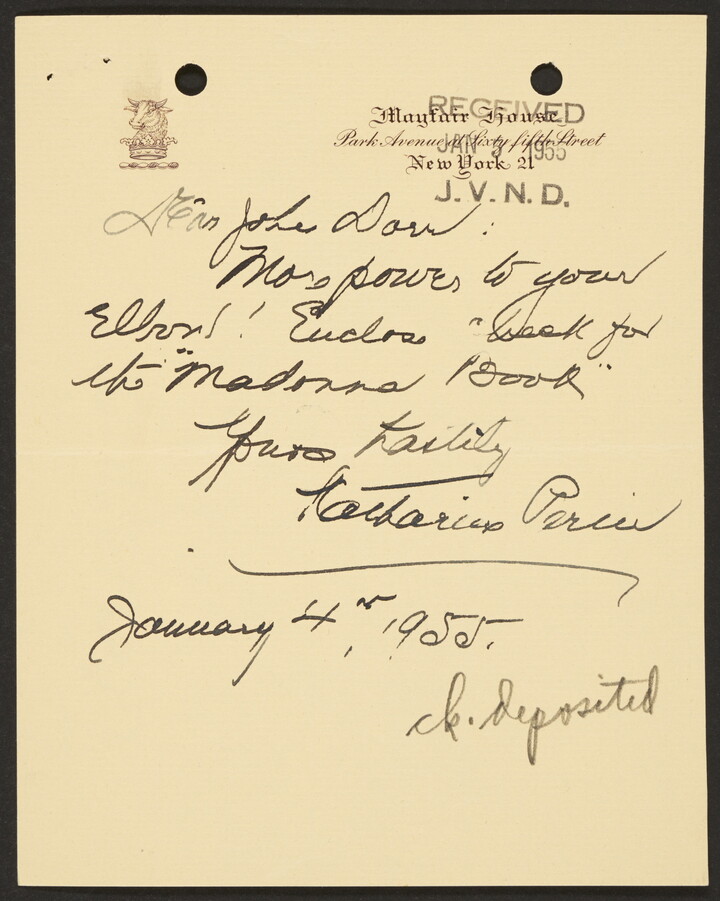 Mayfair House
Park Avenue at Sixty fifth Street
New York 21
RECEIVED
JAN 1955
J. V. N. D.
Dear John Dorr :
More power to your
Elbow! Enclose check for
the "Madonna Book"
Yours hastily
Katharine
January 4th, 1955.
ck. deposited